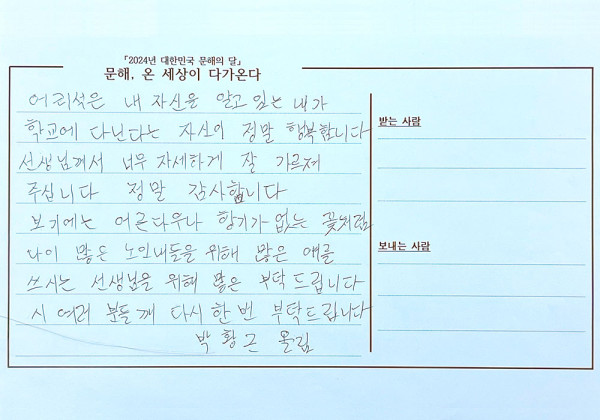 「2024년 대한민국 문해의 달」
문해, 온 세상이 다가온다
어리석은 내 자신을 알고 있는 내가
학교에 다닌다는 자신이 정말 행복합니다
선생님께서 너무 자세하게 잘 가르쳐
주십니다 정말 감사합니다
보기에는 어른다우나 향기가 없는 꽃처럼
나이 많은 노인네들을 위해 많은 애를
쓰시는 선생님을 위해 많은 부탁드립니다
시 여러 분들께 다시 한번 부탁드립니다
박황근 올림
받는 사람
보내는 사람